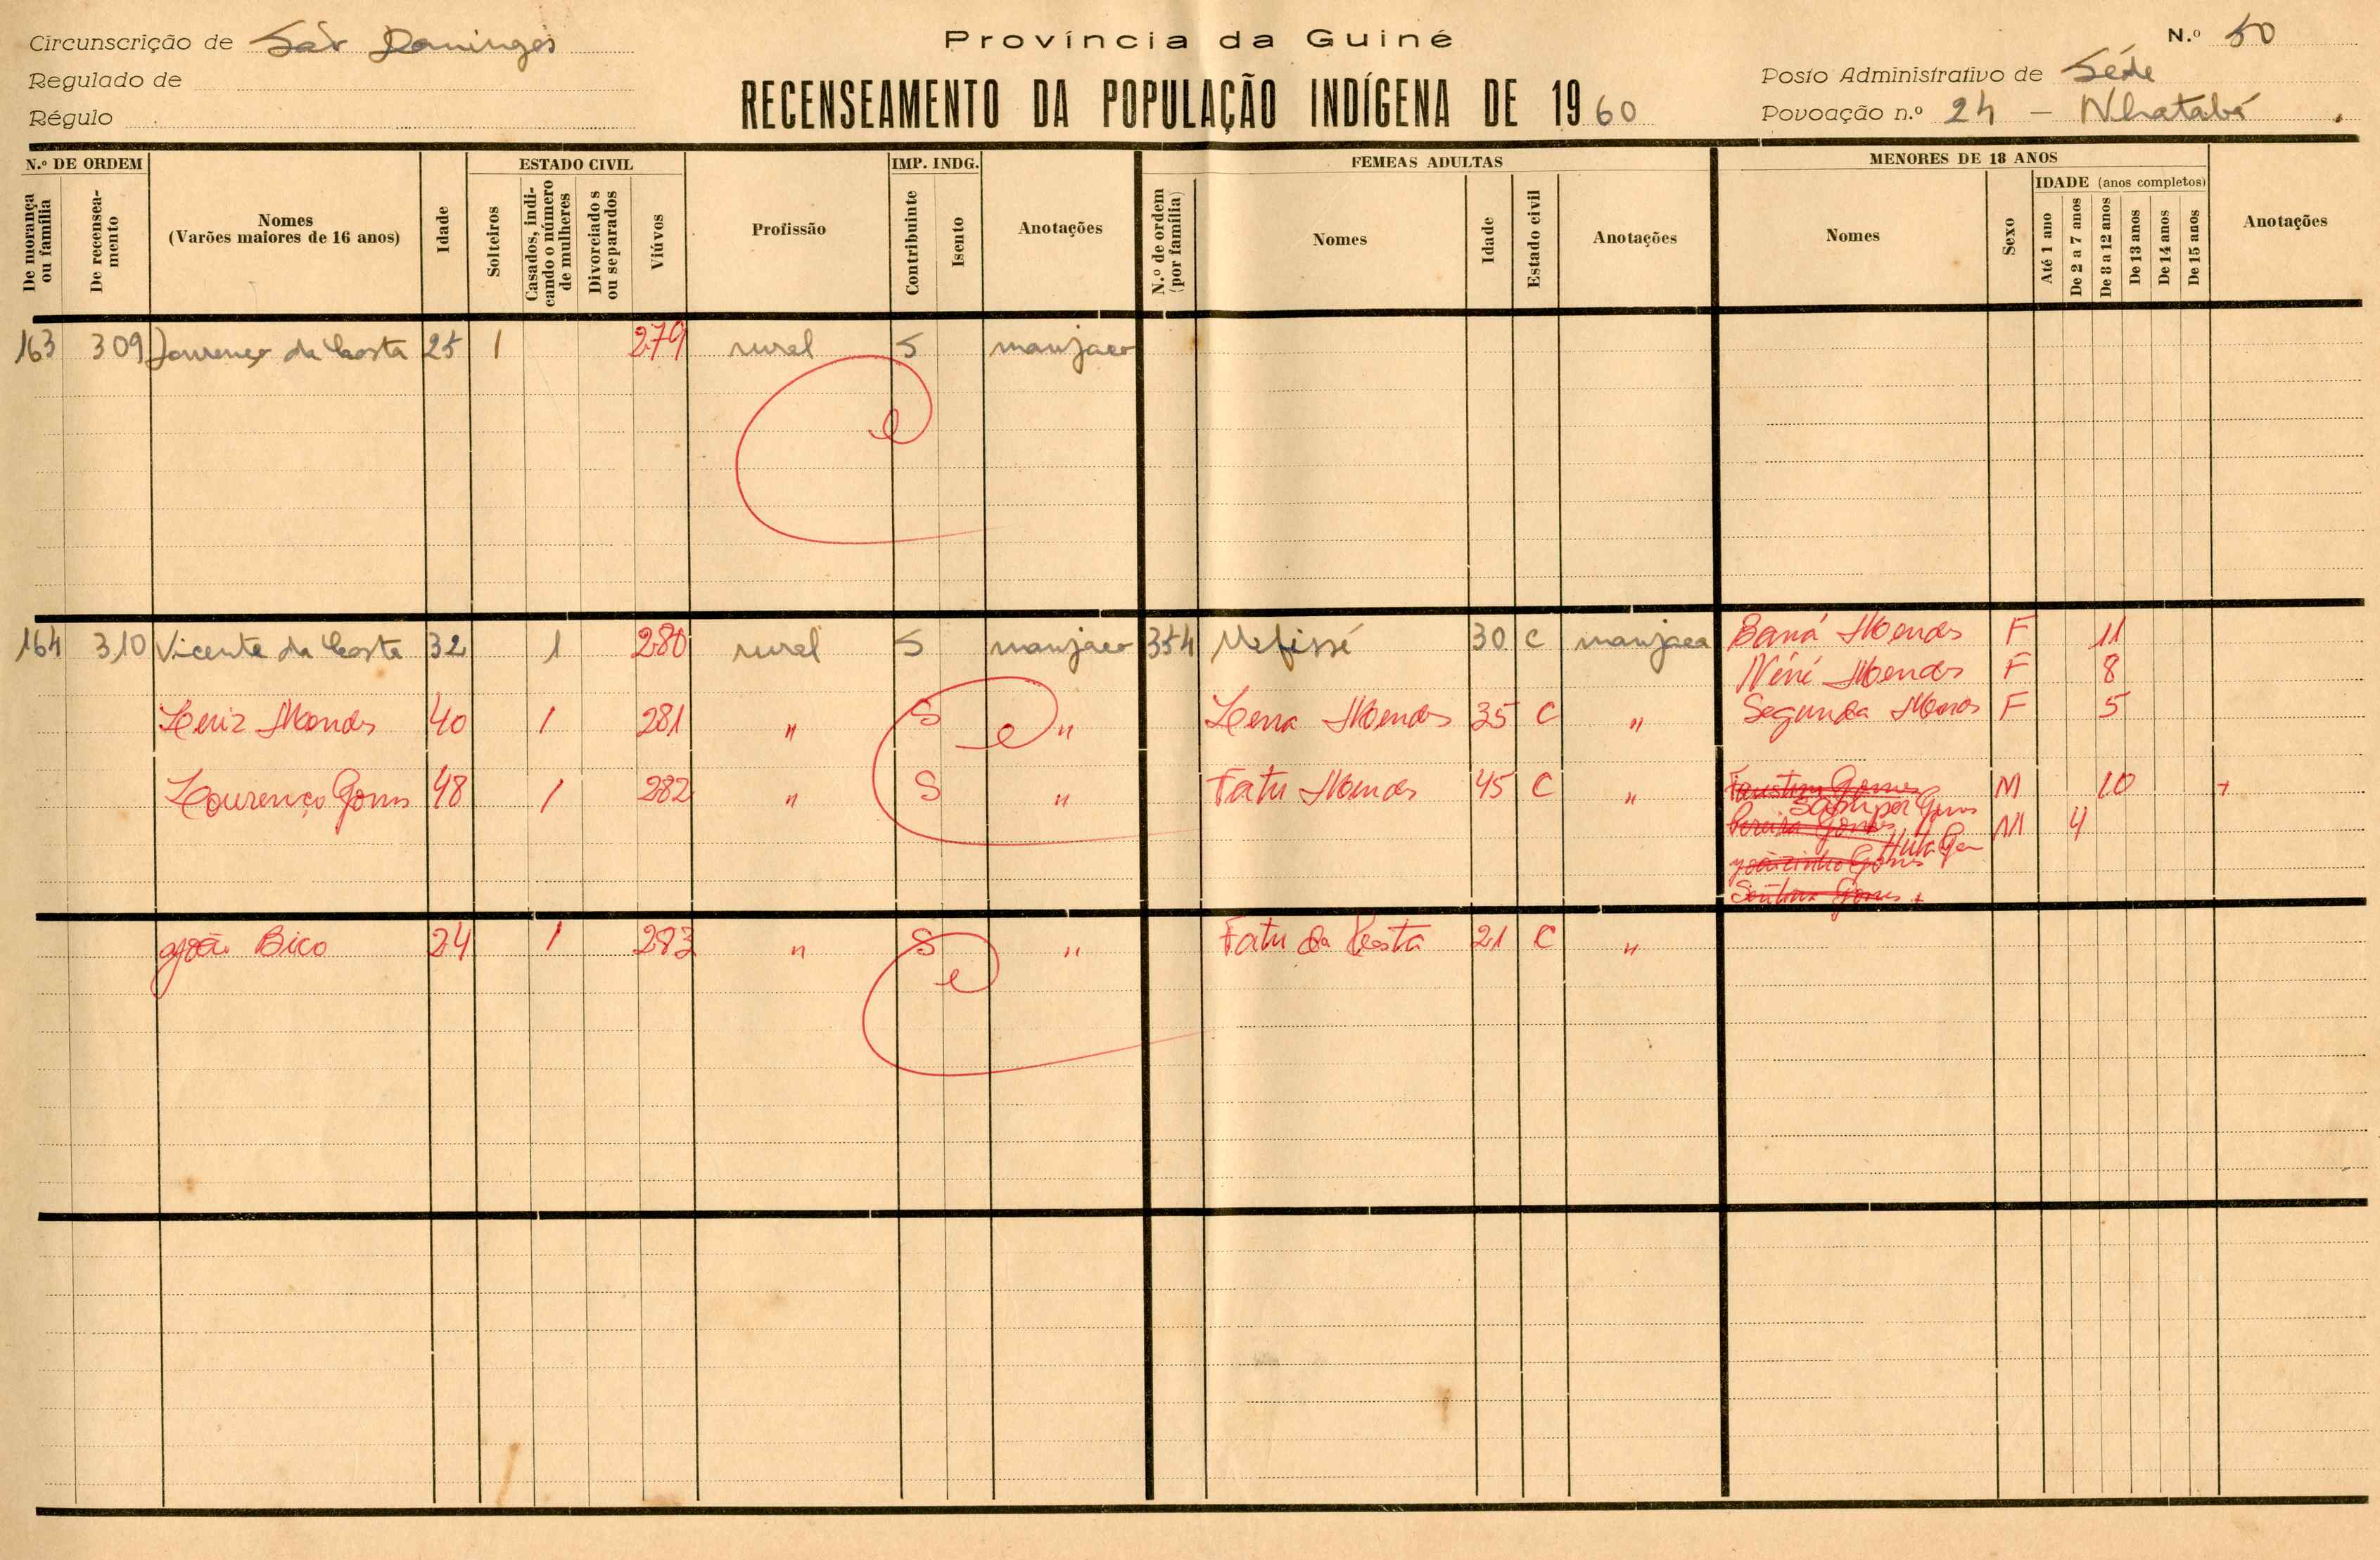 Circunscrição de São Domingos
Regulado de
Régulo
Província da Guiné
RECENSEAMENTO DA POPULAÇÃO INDÍGENA DE 1960
N.º 50
Posto Administrativo de Séde
Povoação n.º 24 - Nhatabá
N.º DE ORDEM
De morança ou família
De recensea-mento
Nomes
(Varões maiores de 16 anos)
Idade
ESTADO CIVIL
Solteiros
Casados, indi-cando o número de mulheres
Divorciados ou separados
Viúvos
Profissão
IMP. INDG.
Contribuinte
Isento
Anotações
FEMEAS ADULTAS
N.º de ordem (por família)
Nomes
Idade
Estado civil
Anotações
MENORES DE 18 ANOS
Nomes
Sexo
IDADE (anos completos)
Até 1 ano
De 2 a 7 anos
De 8 a 12 anos
De 13 anos
De 14 anos
De 15 anos
Anotações
163 309 Lourenço da Costa 25 1 279 rural S manjaco
164 310 Vicente da Costa 32 1 280 rural S manjaco 354 30 C manjaca Baná Mendes F 11
Néné Mendes F 8
Luiz Mendes 40 1 281 " S " Mendes 35 C " Segunda Mendes F 5
Lourenço Gomes 48 1 282 " S " Fatu Mendes 45 C " Faustino Gomes M 10 +
Gomes
Pereira Gomes M 4
Joãozinho Gomes
Gomes +
João Bico 24 1 283 " S " Fatu da Costa 21 C "